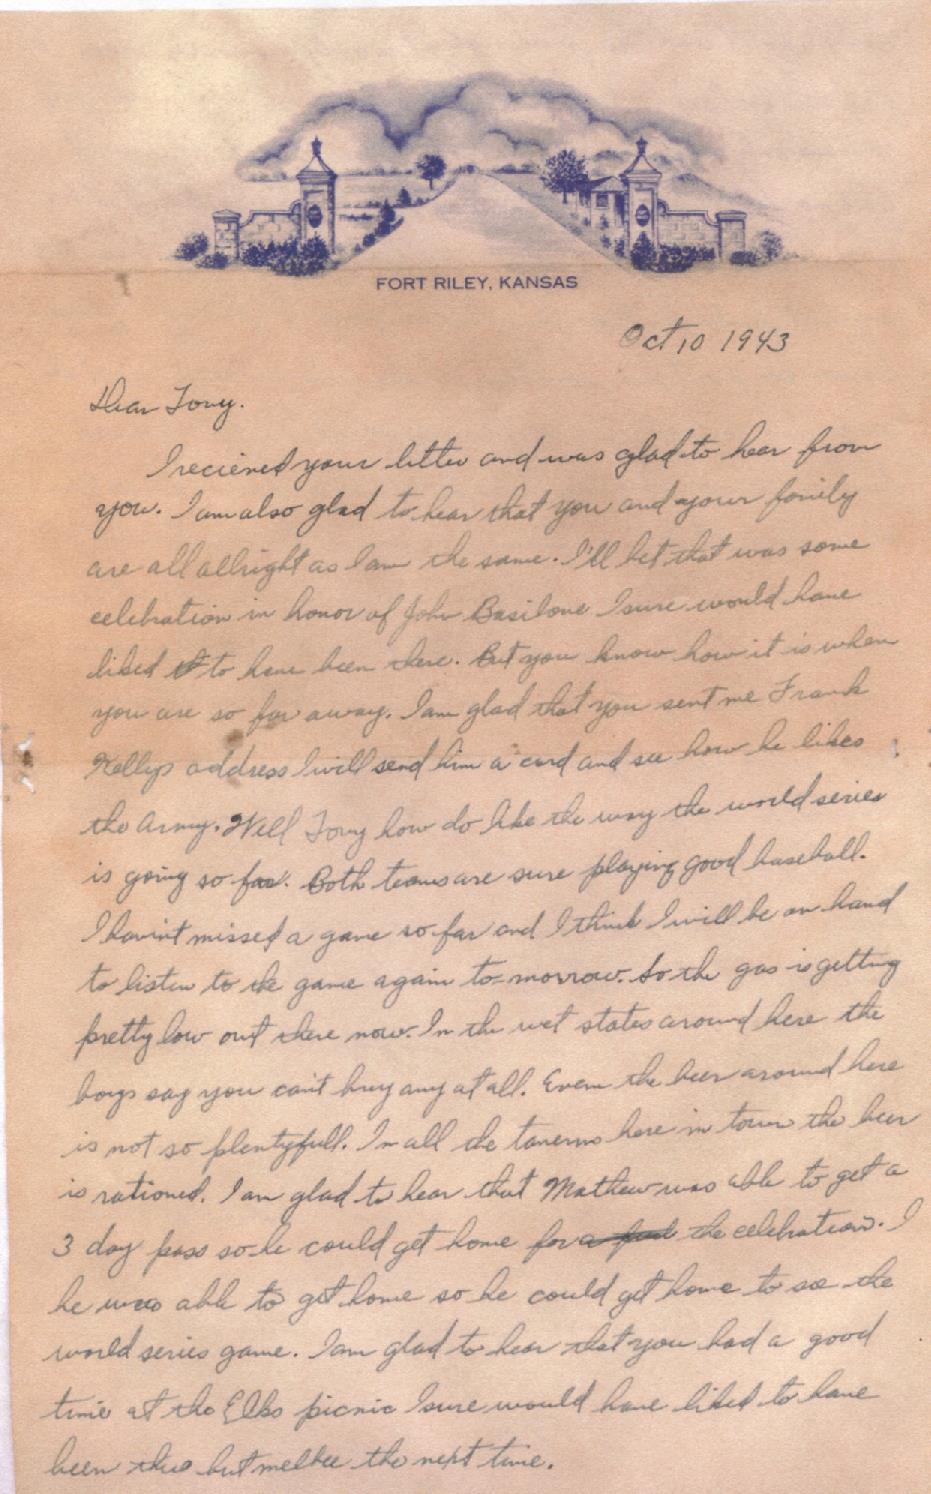 FORT RILEY, KANSAS
Oct 10 1943
Dear Tony.
I recieved your letter and was glad to hear from
you. I am also glad to hear that you and your family
are all allright as I am the same. I'll bet that was some
celebration in honor of John Basilone I sure would have
liked to have been there. But you know how it is when
you are so far away. I am glad that you sent me Frank
Kellys address I will send him a card and see how he likes
the Army. Well Tony how do like the way the world series
is going so far. Both teams are sure playing good baseball.
I havint missed a game so far and I think I will be on hand
to listen to the game again to-morrow. So the gas is getting
pretty low out there now. In the wet states around here the
boys say you cant buy any at all. Even the beer around here
is not so plentyfull. In all the taverns here in town the beer
is rationed. I am glad to hear that Mathew was able to get a
3 day pass so he could get home for the celebration. I
he was able to get home so he could get home to see the
world series game. I am glad to hear that you had a good
time at the Elks picnic I sure would have liked to have
been but the next time.